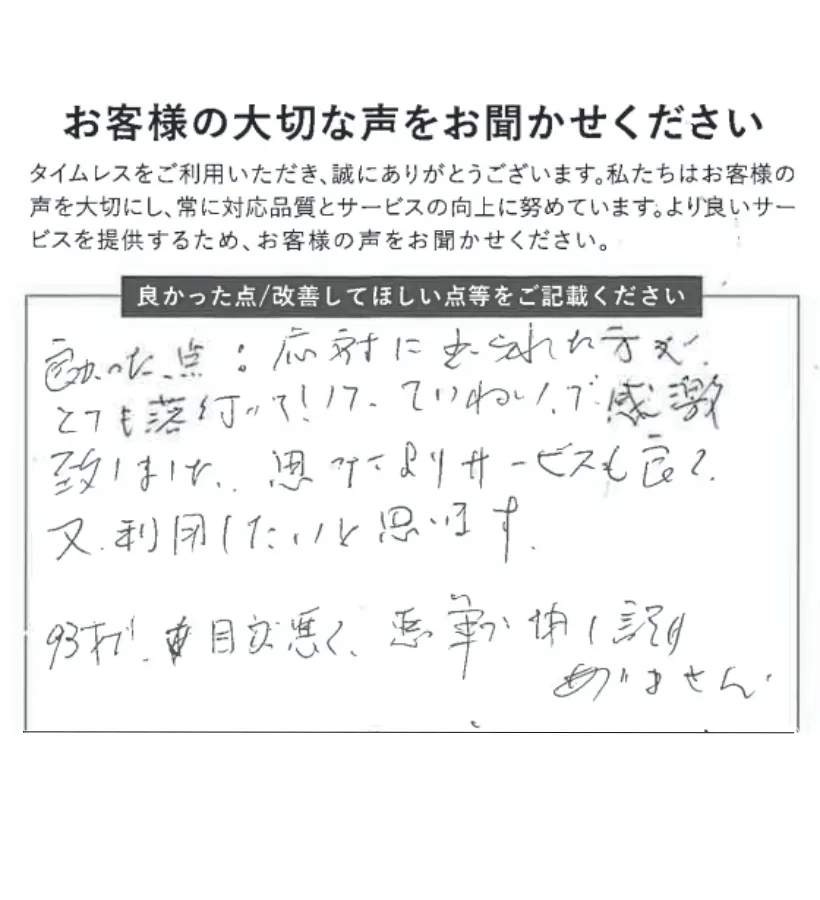 お客様の大切な声をお聞かせください
タイムレスをご利用いただき、誠にありがとうございます。私たちはお客様の
声を大切にし、常に対応品質とサービスの向上に努めています。より良いサー
ビスを提供するため、お客様の声をお聞かせください。
良かった点/改善してほしい点等をご記載ください
良かった点:応対に出られた方が、
とても落付いて ていねいで感激
致しました。思ったよりサービスも良く、
又、利用したいと思います。
93才で、目が悪く、悪筆が申し訳
ありません